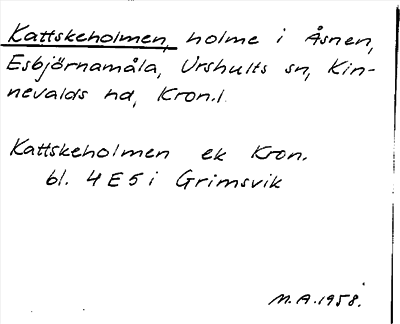 Kattskeholmen, holme i Åsnen,
Esbjörnamåla, Urshults sn, Kin-
nevalds hd, Kron.l.
Kattskeholmen ek Kron.
bl. 4E5i Grimsvik
M.A.1958.